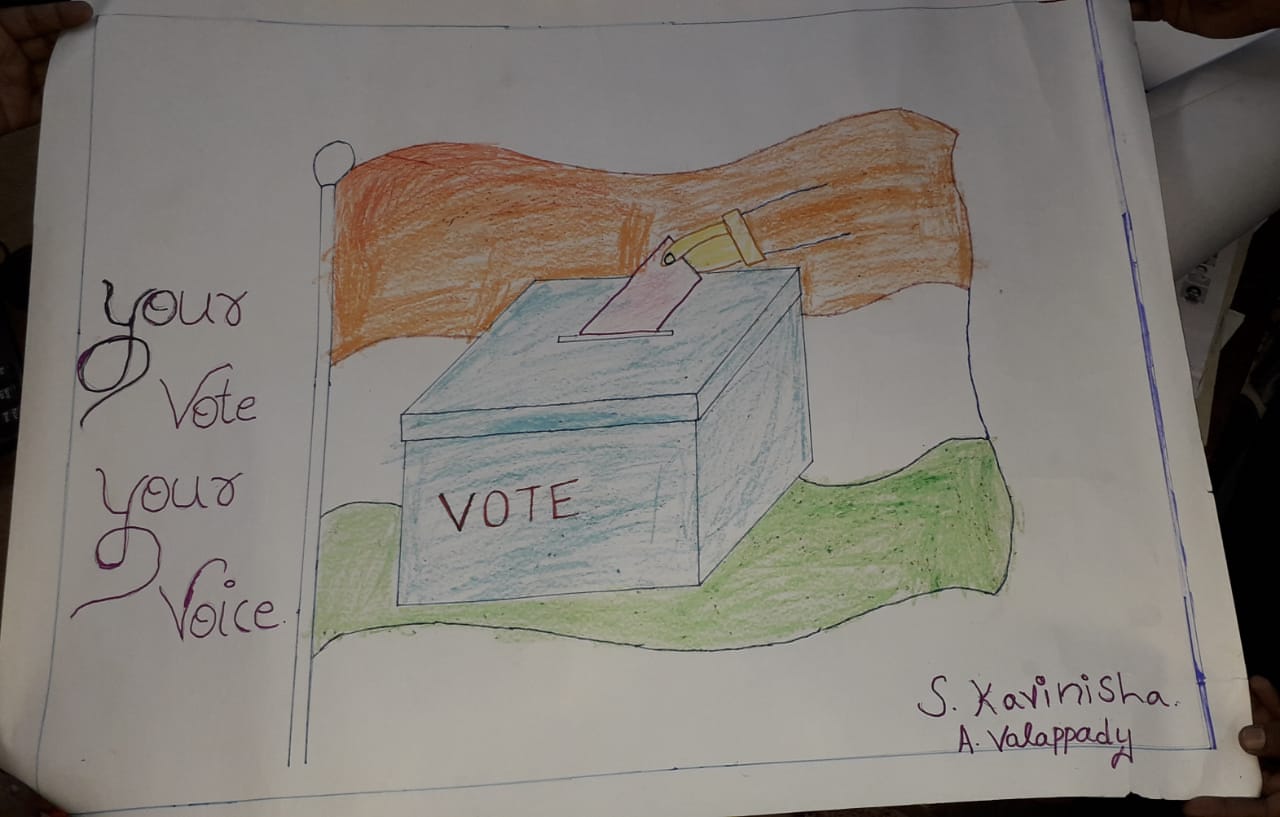 your
Vote
your
Voice.
VOTE
S. Kavinisha.
A. Valappady